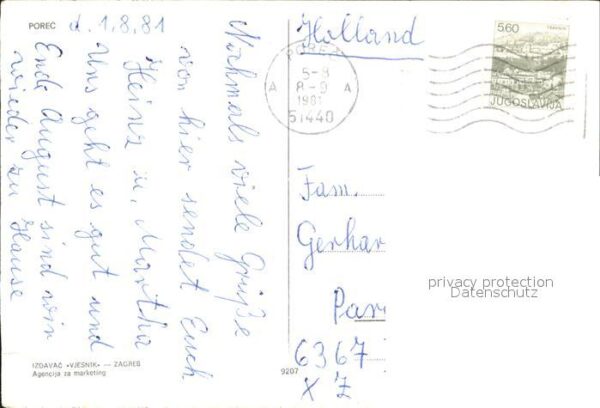 POREČ
d. 1.8.81
Nochmals viele Grüße
von hier sendet Euch
Heinz u. Martha
Uns geht es gut und
Ende August sind wir
wieder zu Hause
IZDAVAČ «VJESNIK» — ZAGREB
Agencija za marketing
9207
Holland
POREČ
5-8
8-9
1981
A A
51440
5.60
JUGOSLAVIJA
Fam.
Gerhar
Par
6367
x Z
privacy protection
Datenschutz